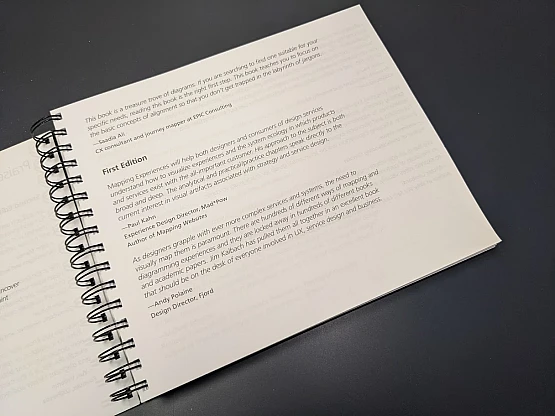 This book is a treasure trove of diagrams. If you are searching to find one suitable for your
specific needs, reading this book is the right first step. This book teaches you to focus on
the basic concepts of alignment so that you don't get trapped in the labyrinth of jargons.
—Saadia Ali
CX consultant and journey mapper at EPIC Consulting
First Edition
Mapping Experiences will help both designers and consumers of design services
understand how to visualize experiences and the system ecology in which products
and services exist with the all-important customer. His approach to the subject is both
broad and deep. The analytical and practical/practice chapters speak directly to the
current interest in visual artifacts associated with strategy and service design.
—Paul Kahn
Experience Design Director, Mad*Pow
Author of Mapping Websites
As designers grapple with ever more complex services and systems, the need to
visually map them is paramount. There are hundreds of different ways of mapping and
diagramming experiences and they are locked away in hundreds of different books
and academic papers. Jim Kalbach has pulled them all together in an excellent book
that should be on the desk of everyone involved in UX, service design and business.
—Andy Polaine
Design Director, Fjord